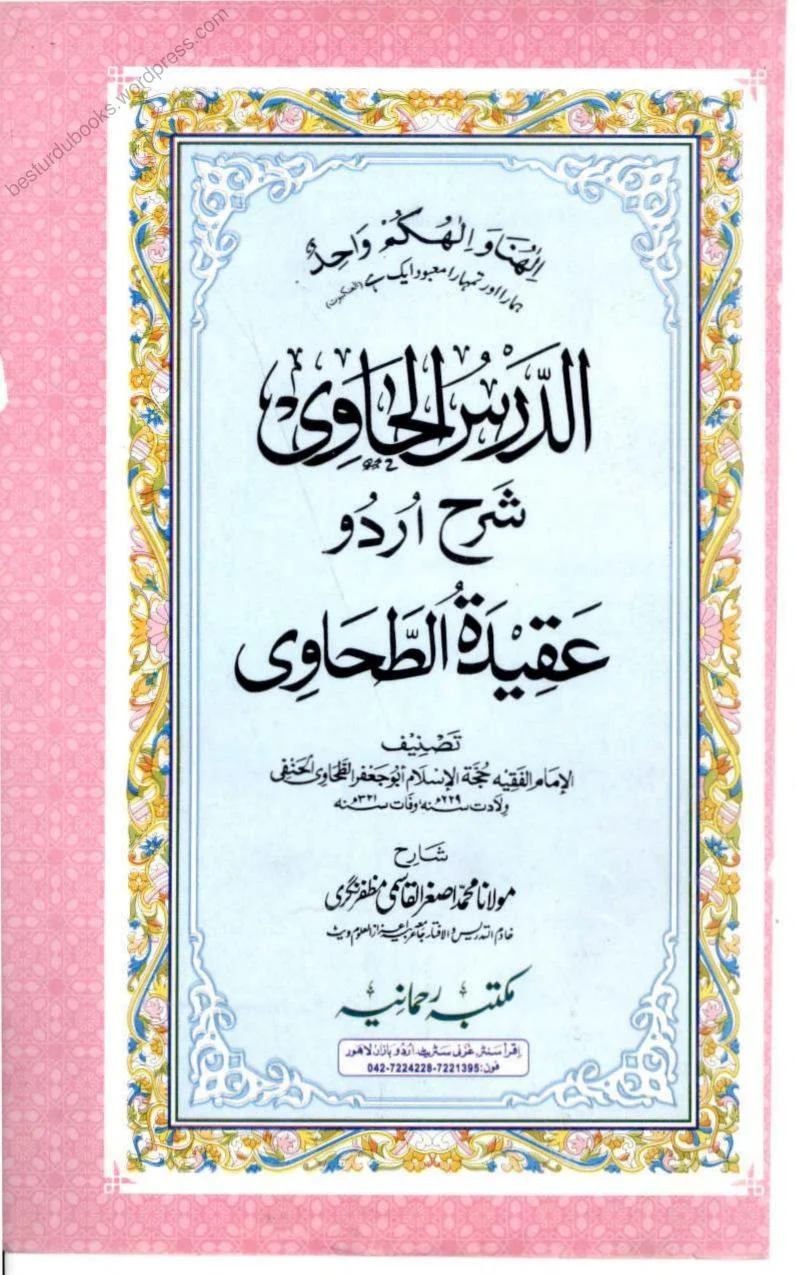 besturdubooks.wordpress.com
اِلٰهُنَا وَ اِلٰهُكُمْ وَاحِدٌ
ہمارا اور تمہارا معبود ایک ہے (العنکبوت)
الدَّرْسُ الْحَاوِی
شرح اُردُو
عَقِیْدَةُ الطَّحَاوِی
تَصْنِیْف
الإمام الفقیه حُجَّة الإسلام أبو جعفر الطَّحَاوِی الحَنَفِی
ولادت سنہ ۲۲۹ھ وفات سنہ ۳۲۱ھ
شَارِح
مولانا محمد اصغر القاسمی مظفرنگری
خادم التدریس والافتاء جامعہ عربیہ اعزاز العلوم ویٹ
مکتبہ رحمانیہ
اِقرأ سنٹر غزنی سٹریٹ اُردُو بازار لاھور
فون: 042-7224228-7221395